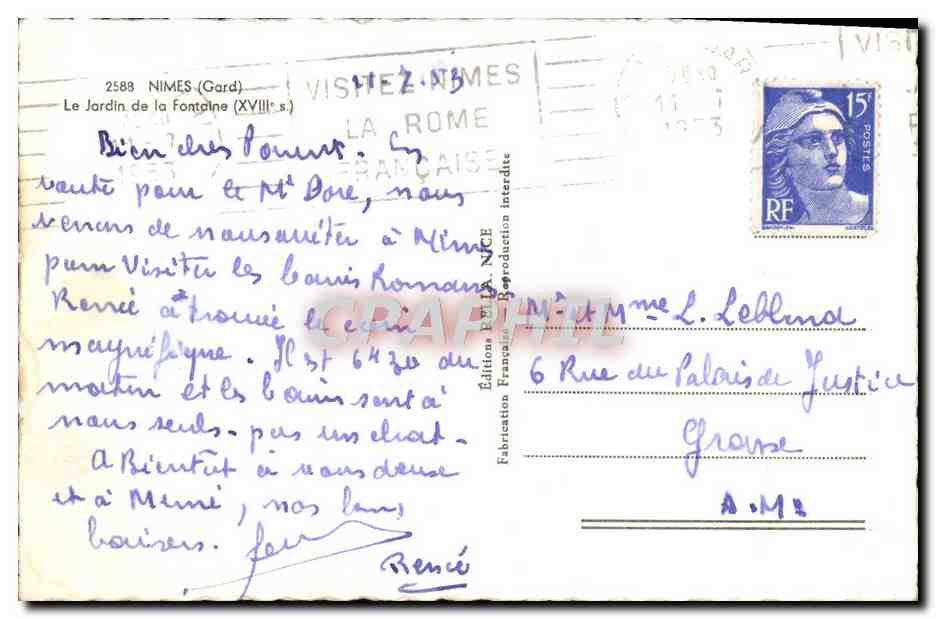 2588 NIMES (Gard)
Le Jardin de la Fontaine (XVIIIe s.)
VISITEZ NIMES
LA ROME
FRANÇAISE
11-7-53
15F
POSTES
RF
VISI
1953
Bien chers
route pour le Mt Dore, nous
venons de nous arrêter à Nimes
pour visiter les bains Romains,
Renée a trouvé le coin
magnifique. Il est 6h30 du
matin et les bains sont à
nous seuls - pas un chat -
A Bientôt à vous deux
et à Mémé, nos bons
baisers.
Renée
Editions RELLA, NICE
Fabrication Française - Reproduction interdite
CPAPHIL
Mr et Mme L. Leblond
6 Rue du Palais de Justice
Grasse
A.Ms